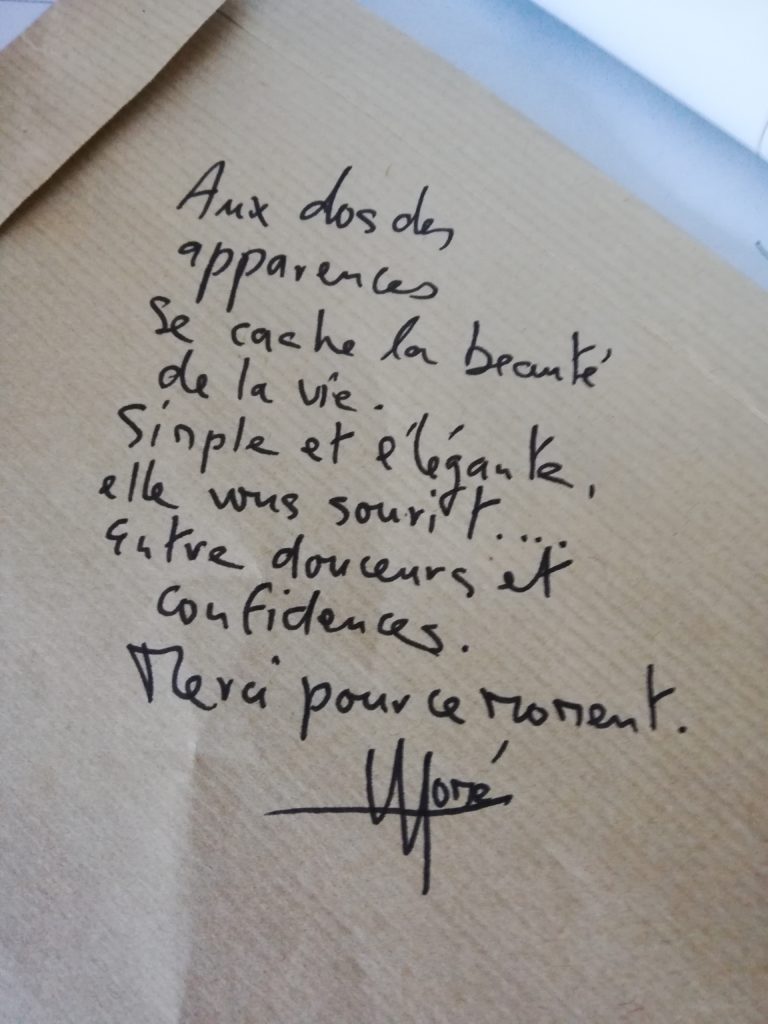 Aux dos des
apparences
se cache la beauté
de la vie.
Simple et élégante,
elle vous sourit....
entre douceurs et
confidences.
Merci pour ce moment.